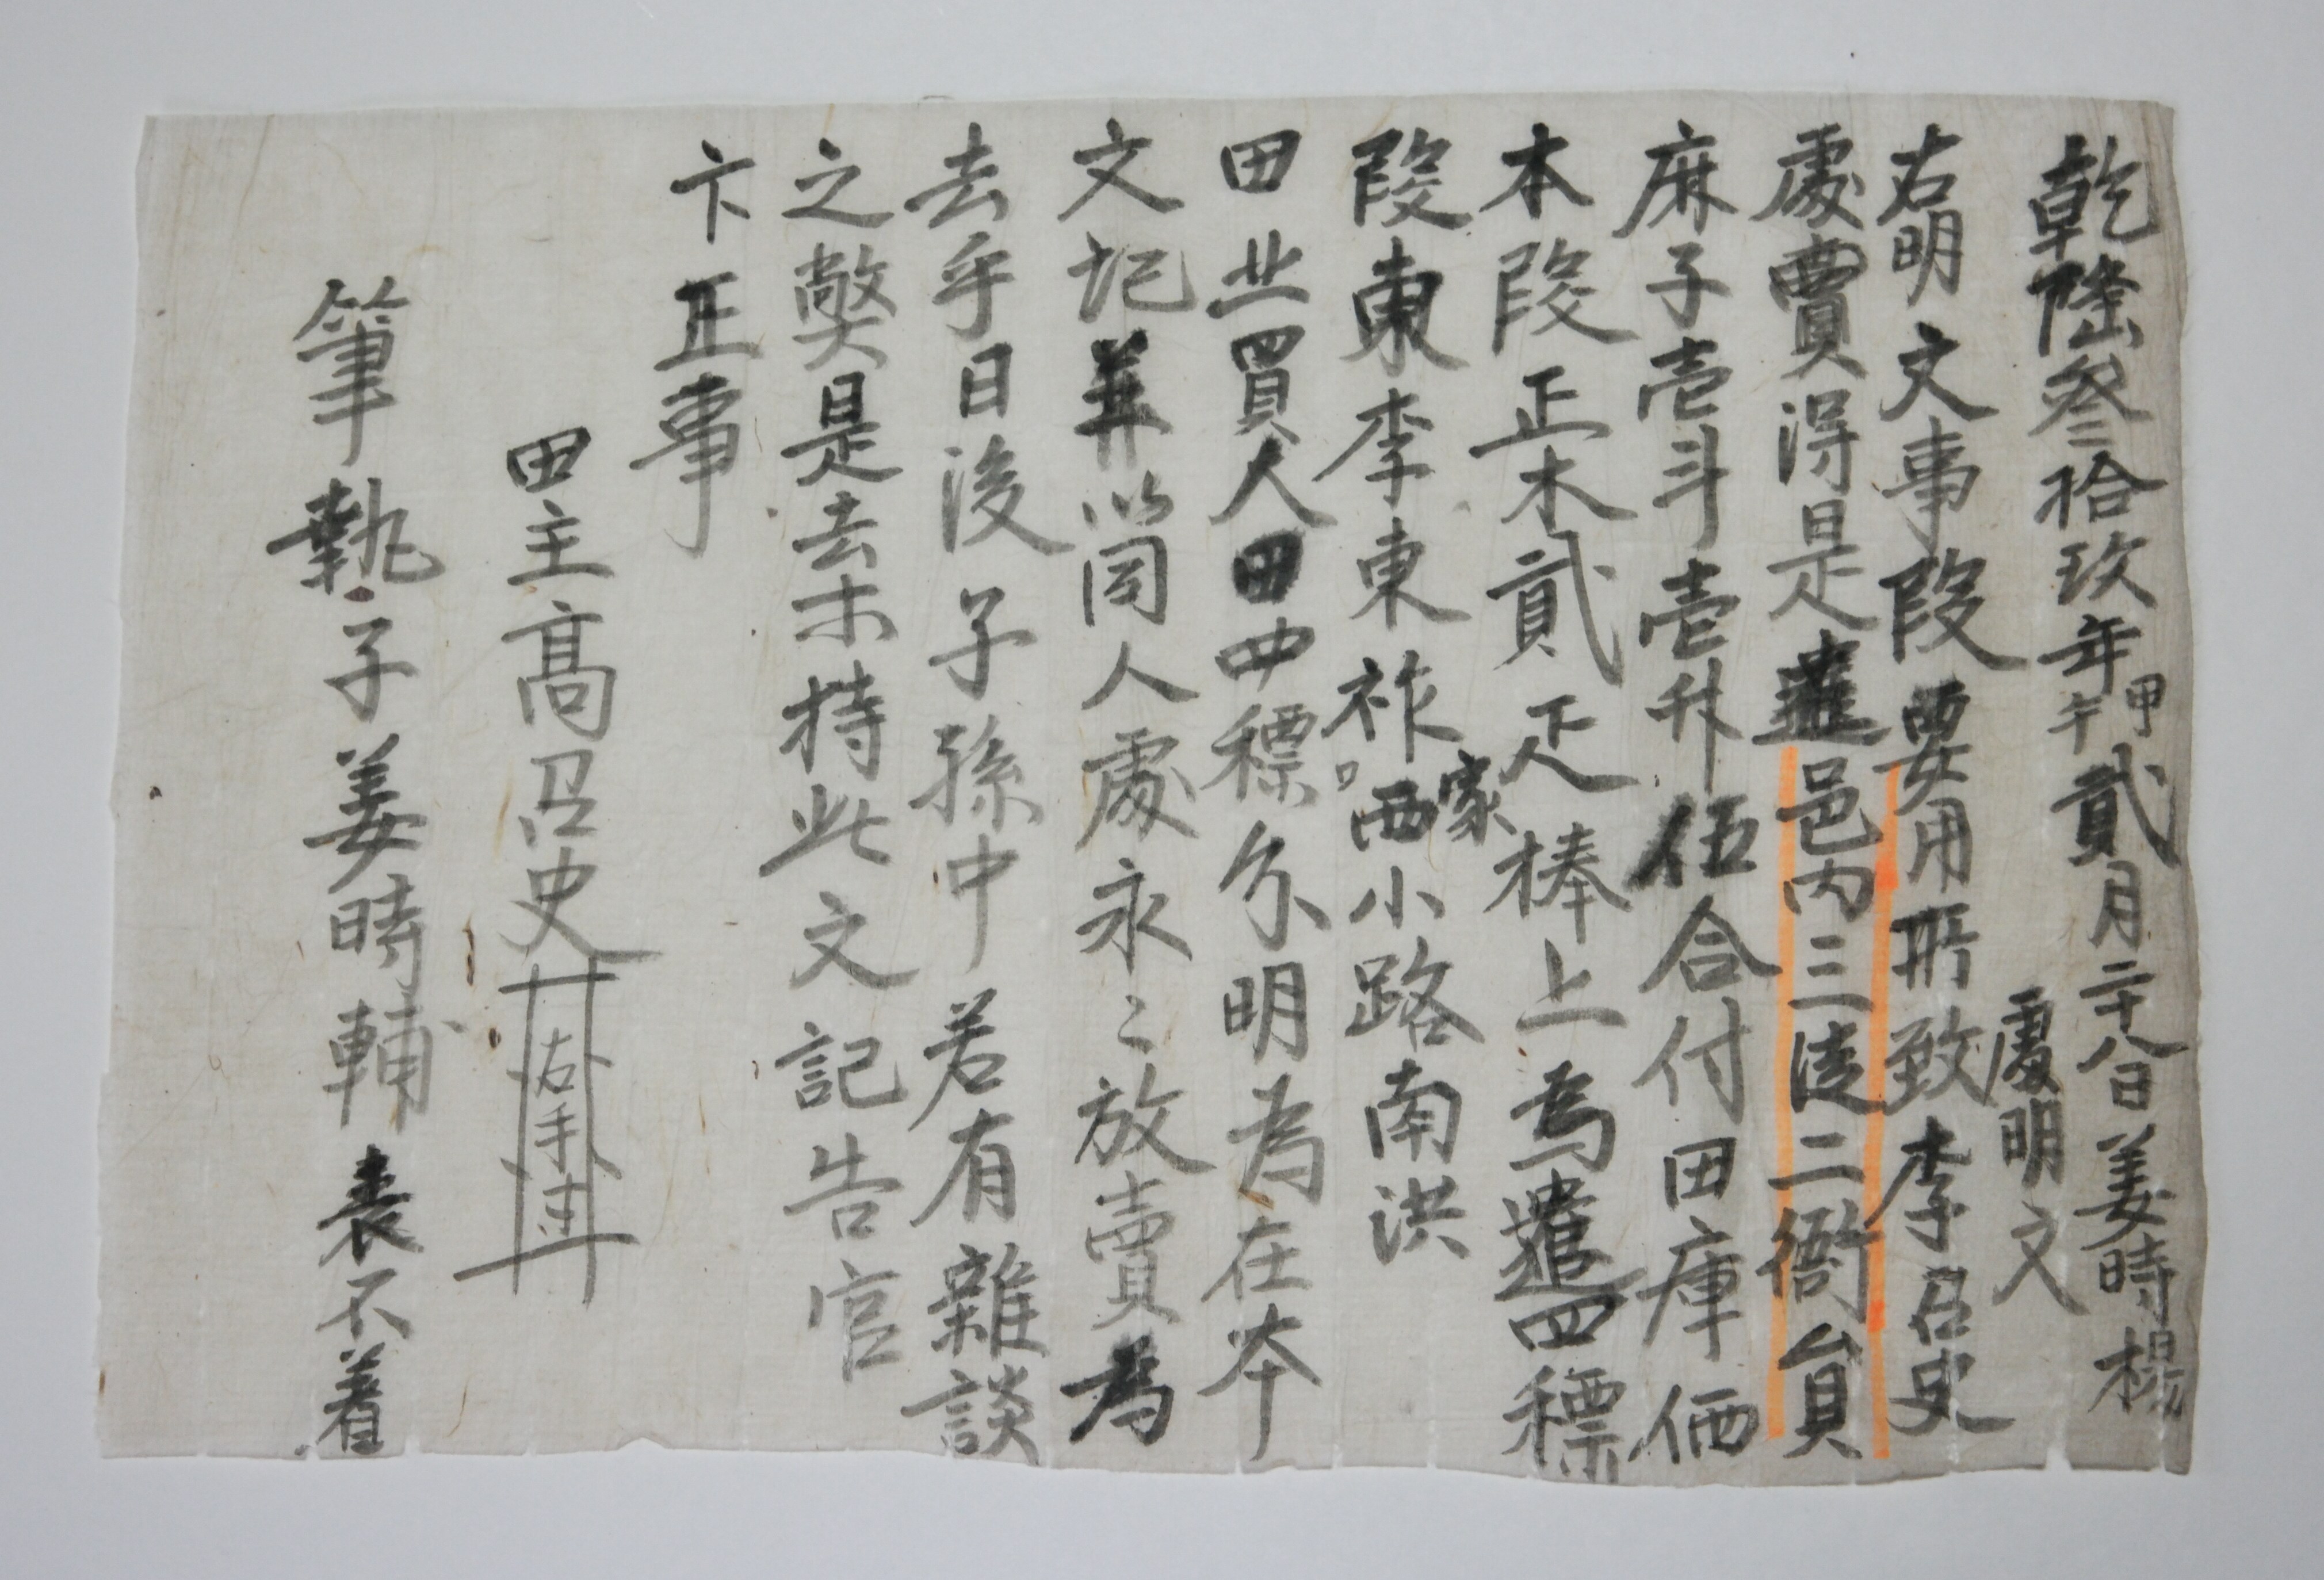 乾隆叄拾玖年甲午貳月二十八日姜時楊
處明文
右明文事段要用所致李召史
處買得是遣邑内三徒二衙員
麻子壱斗壱升伍合付田庫価
本段正木貳疋捧上為遣四標
段東李東祚家西小路南洪
田北買人田中標分明為在本
文記并以同人處永〻放賣為
去乎日後子孫中若有雜談
之弊是去未持此文記告官
卞正事
田主高召史
右手寸
筆執子姜時輔喪不着